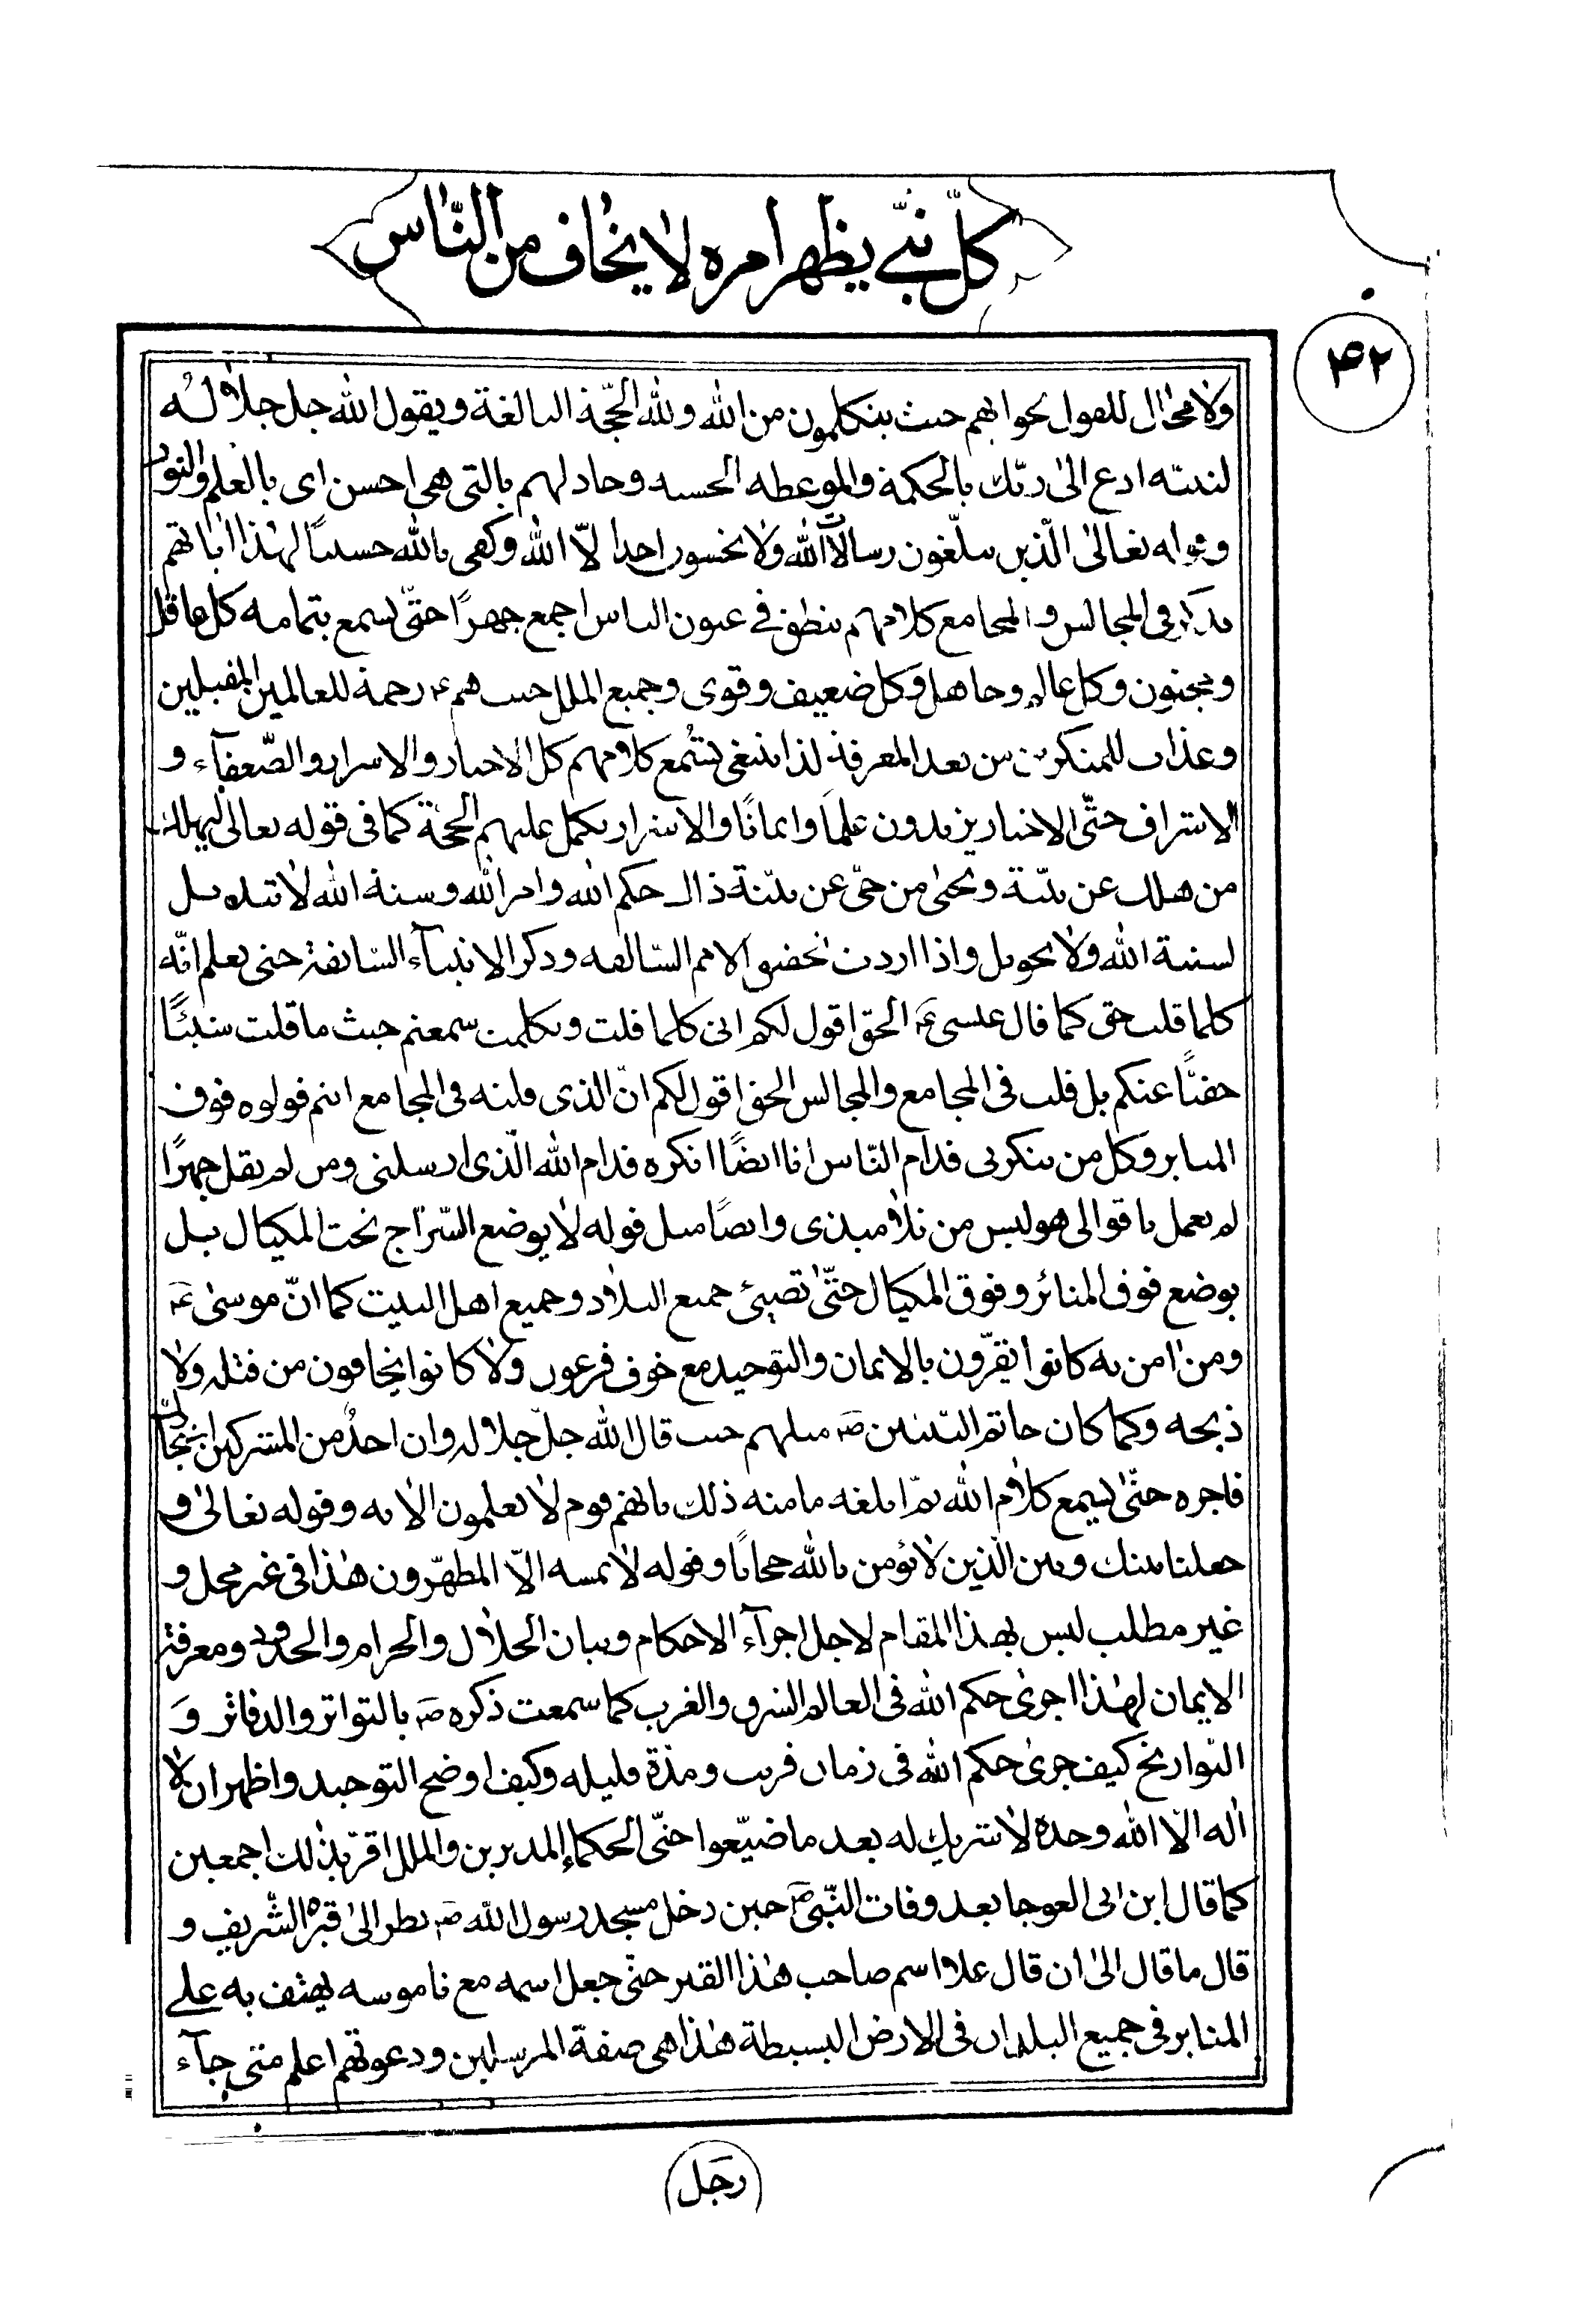 كلّ نبّي يظهر امره لا يخاف من النّاس
۴۲
ولا مجال للعقول بجوابهم حيث يتكلمون من الله ولله الحجّة البالغة ويقول الله جل جلاله
لنبيّه ادع الى ربّك بالحكمة والموعظه الحسنه وجادلهم بالتي هي احسن اى بالعلم والنور
وقوله تعالى الّذين يبلّغون رسالات الله ولا يخشون احدا الّا الله وكفى بالله حسيباً لهذا اياتهم
يذكر في المجالس والمجامع كلامهم ينطق في عيون الناس اجمع جهرًا حتّى يسمع بتمامه كل عاقل
ومجنون وكل عالم وجاهل وكل ضعيف وقوى وجميع الملل حيث هم ع رحمة للعالمين المقبلين
وعذاب للمنكرين من بعد المعرفة لذا ينبغى يستمع كلامهم كل الاخيار والاشرار والضّعفآء و
الاشراف حتّى الاخيار يزيدون علمًا وايمانًا والاشرار يكمل عليهم الحجة كما فى قوله تعالى ليهلك
من هلك عن بيّنة ويحيى من حىّ عن بيّنة ذالك حكم الله وامر الله وسنة الله لا تبديل
لسنة الله ولا تحويل واذا اردت تحقيق الامم السّالفه وذكر الانبيآء السّابقة حتى تعلم انّه
كلما قلت حق كما قال عيسى ع الحق اقول لكم انى كلما قلت وتكلمت سمعتم حيث ما قلت شيئًا
خفيًّا عنكم بل قلت فى المجامع والمجالس الحق اقول لكم انّ الذى قلته فى المجامع انتم قولوه فوق
المنابر وكل من ينكرنى قدام النّاس انا ايضًا انكره قدام الله الّذى ارسلنى ومن لم يقل جهرًا
لم يعمل باقوالى هو ليس من تلاميذى وايضًا مثل قوله لا يوضع السّراج تحت المكيال بل
يوضع فوق المنائر وفوق المكيال حتّى تضيئ جميع البلاد وجميع اهل البيت كما انّ موسى ع
ومن امن به كانوا يقرّون بالايمان والتوحيد مع خوف فرعون ولا كانوا يخافون من قتله ولا
ذبحه وكما كان خاتم النّبيين ص مثلهم حيث قال الله جلّ جلاله وان احدٌ من المشركين استجارك
فاجره حتّى يسمع كلام الله ثمّ ابلغه مامنه ذلك بانهم قوم لا يعلمون الايه وقوله تعالى و
جعلنا بينك وبين الّذين لا يؤمن بالله حجابًا وقوله لا يمسه الّا المطهّرون هذا فى غير محل و
غير مطلب ليس بهذا المقام لاجل اجرآء الاحكام وبيان الحلال والحرام والحدود ومعرفة
الايمان لهذا اجرى حكم الله فى العالم الشرق والغرب كما سمعت ذكره ص بالتواتر والدفاتر وَ
التّواريخ كيف جرى حكم الله فى زمان قريب ومدّة قليله وكيف اوضح التوحيد واظهر ان لا
اله الّا الله وحده لا شريك له بعد ما ضيّعوا حتّى الحكماء المدبرين والملل اقرّ بذلك اجمعين
كما قال ابن ابى العوجا بعد وفات النّبّى ص حين دخل مسجد رسول الله ص نظر الى قبره الشّريف و
قال ما قال الى ان قال علا اسم صاحب هذا القبر حتّى جعل اسمه مع ناموسه يهتف به على
المنابر فى جميع البلدان فى الارض البسيطة هذا هى صفة المرسلين ودعوتهم اعلم متى جآء
رجَل